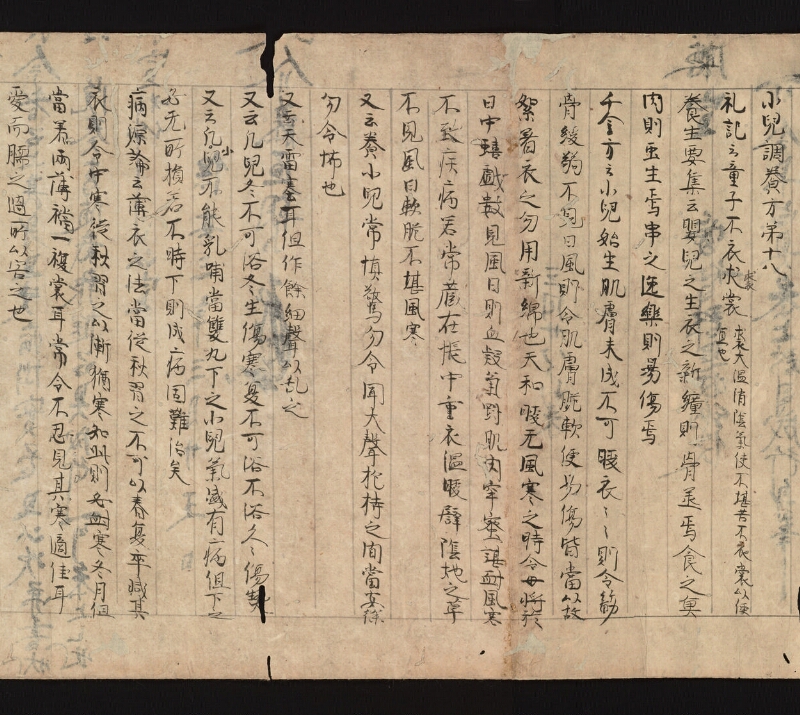 小兒調養方第十八
礼記云童子不衣裘裳 裘大温消陰氣使不堪苦不衣裳以便宜也
養生要集云嬰兒之生衣之新纊則骨蒸焉食之魚
肉則虫生焉串之逸樂則易傷焉
千金方云小兒始生肌膚未成不可暖衣〻〻則令筋
骨緩弱不見日風則令肌膚脆軟便易傷皆當以故
絮着衣之勿用新綿也天和暖无風寒之時令母將於
日中嬉戲數見風日則血凝氣剛肌肉牢密堪耐風寒
不致疾病若常藏在帳中重衣温暖譬陰地之草
不見風日軟脆不堪風寒
又云養小兒常慎驚勿令聞大聲抱持之間當安徐
勿令怖也
又云天雷塞耳但作餘細聲以乱之
又云凡兒冬不可浴冬生傷寒夏不可浴不浴久〻傷熱
又云凡小兒不能乳哺當雙丸下之小兒氣盛有病但下之
必无所損若不時下則成病固難治矣
病源論云薄衣之法當從秋習之不可以春夏卒减其
衣則令中寒從秋習之以漸稍寒如此則必耐寒冬月但
當着兩薄襦一複裳耳常令不忍見其寒適佳耳
愛而㬉之適所以害之也